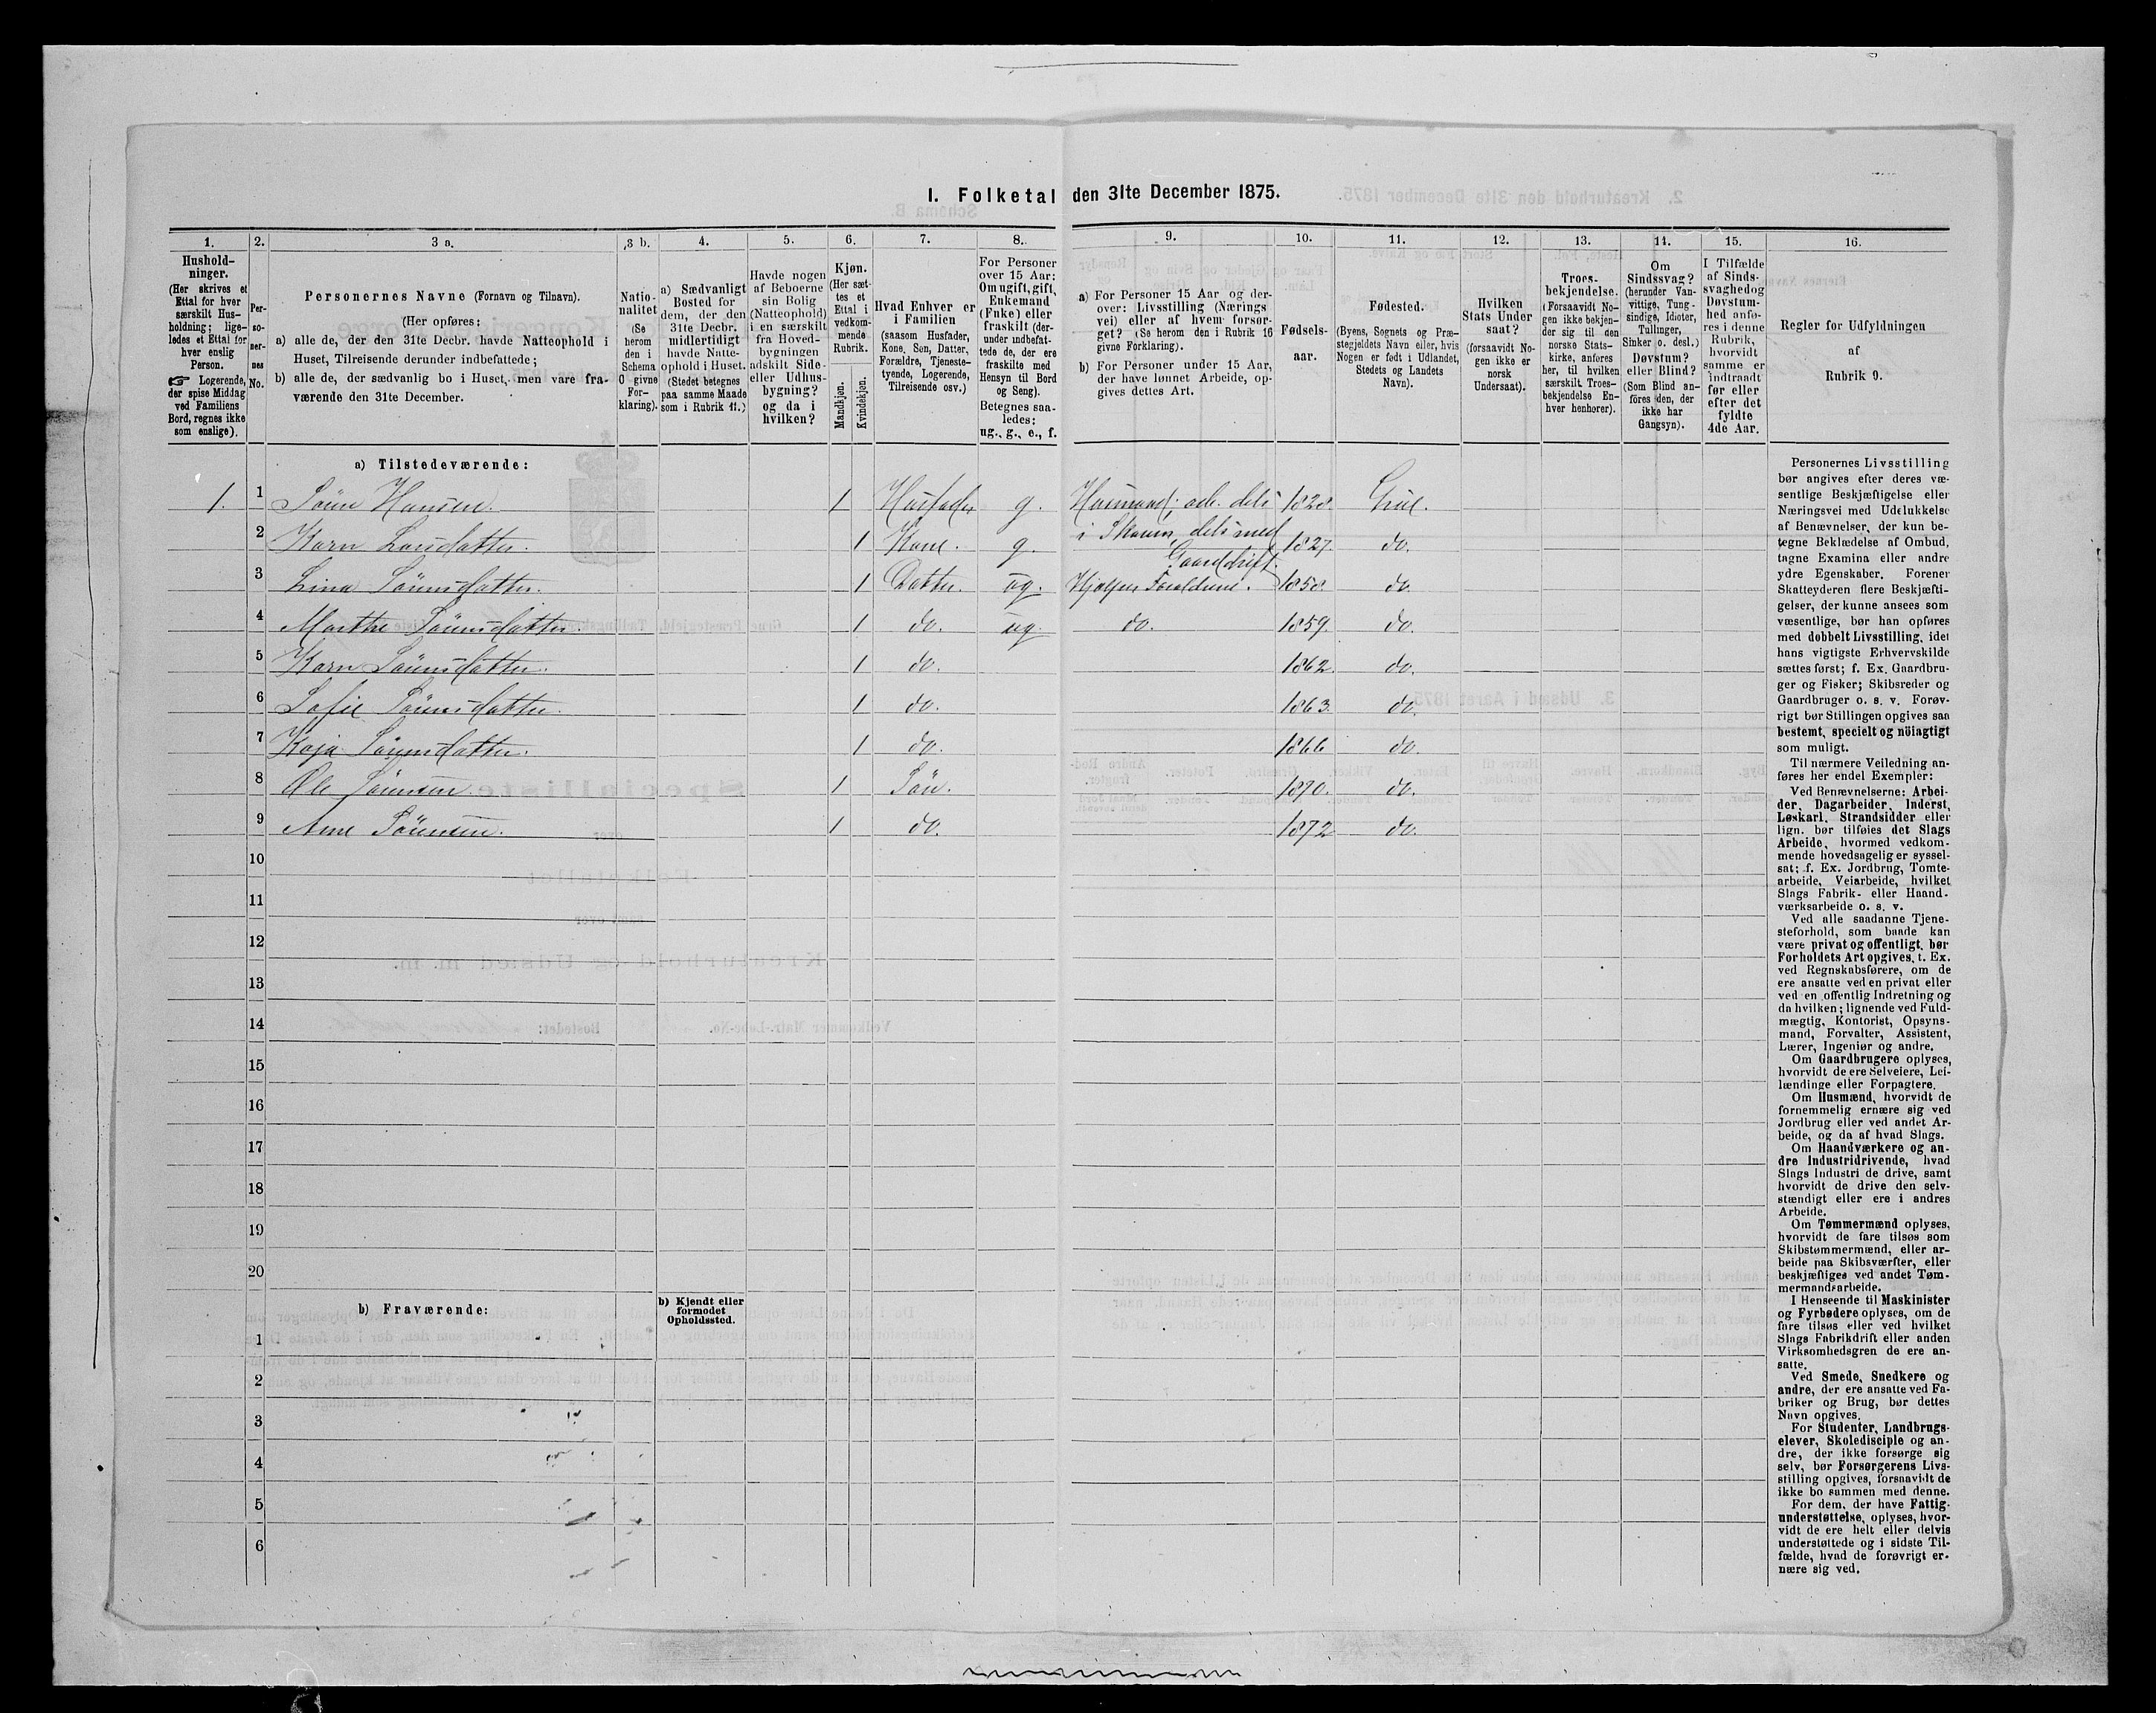 I. Folketal den 31te December 1875.
1. 2. 3 a. 3 b. 4. 5. 6. 7. 8. 9. 10. 11. 12. 13. 14. 15. 16.
Hushold-
ninger.
(Her skrives et
Ettal for hver
særskilt Hus-
holdning; lige-
ledes et Ettal for
hver enslig
Person.
☞ Logerende,
der spise Middag
ved Familiens
Bord, regnes ikke
som enslige).
Per-
so-
ner-
nes
No.
Personernes Navne (Fornavn og Tilnavn).
(Her opføres:
a) alle de, der den 31te Decbr. havde Natteophold i
Huset, Tilreisende derunder indbefattede;
b) alle de, der sædvanlig bo i Huset, men vare fra-
værende den 31te December.
Natio-
nalitet
(Se
herom
den i
Schema
O givne
For-
klaring).
a) Sædvanligt
Bosted for
dem, der den
31te Decbr.
midlertidigt
havde Natte-
ophold i Huset.
(Stedet betegnes
paa samme Maade
som i Rubrik 11.)
Havde nogen
af Beboerne
sin Bolig
(Natteophold)
i en særskilt
fra Hoved-
bygningen
adskilt Side-
eller Udhus-
bygning?
og da i
hvilken?
Kjøn.
(Her sæt-
tes et
Ettal i
vedkom-
mende
Rubrik.
Mandkjøn.
Kvindekjøn.
Hvad Enhver er
i Familien
(saasom Husfader,
Kone, Søn, Datter,
Forældre, Tjeneste-
tyende, Logerende,
Tilreisende osv.)
For Personer
over 15 Aar:
Om ugift, gift,
Enkemand
(Enke) eller
fraskilt (der-
under indbefat-
tede de, der ere
fraskilte med
Hensyn til Bord
og Seng).
Betegnes saa-
ledes:
ug., g., e., f.
a) For Personer 15 Aar og der-
over: Livsstilling (Nærings
vei) eller af hvem forsør-
get? (Se herom den i Rubrik 16
givne Forklaring).
b) For Personer under 15 Aar,
der have lønnet Arbeide, op-
gives dettes Art.
Fødsels-
aar.
Fødested.
(Byens, Sognets og Præ-
stegjeldets Navn eller, hvis
Nogen er født i Udlandet,
Stedets og Landets
Navn).
Hvilken
Stats Under
saat?
(forsaavidt No-
gen ikke er
norsk
Undersaat).
Troes-
bekjendelse.
(Forsaavidt No-
gen ikke bekjen-
der sig til den
norske Stats-
kirke, anføres
her, til hvilken
særskilt Troes-
bekjendelse En-
hver henhører).
Om
Sindssvag?
(herunder Van-
vittige, Tung-
sindige, Idioter,
Tullinger,
Sinker o. desl.)
Døvstum?
eller Blind?
(Som Blind an-
føres den, der
ikke har
Gangsyn).
I Tilfælde
af Sinds-
svaghed og
Døvstum-
hed anfø-
res i denne
Rubrik,
hvorvidt
samme er
indtraadt
før eller
efter det
fyldte
4de Aar.
Regler for Udfyldningen
af
Rubrik 9.
a) Tilstedeværende:
1. 1 Sönn Hansen. 1 Husfader g. Husmand; arb. dels 1828. Grue.
2 Karn Larsdatter. 1 Kone. g. i Skoven, dels med Gaarddrift. 1827. do.
3 Lina Sönnsdatter. 1 Datter. ug. Hjælper Forældrene. 1858. do.
4 Marthe Sönnsdatter. 1 do. ug. do. 1859. do.
5 Karn Sönnsdatter. 1 do. 1862. do.
6 Sofie Sönnsdatter. 1 do. 1863. do.
7 Kaja Sönnsdatter. 1 do. 1866 do.
8 Ole Sönnsen. 1 Sön. 1870. do.
9 Arne Sönnsen. 1 do. 1872 do.
10
11
12
13
14
15
16
17
18
19
20
b) Fraværende:
b) Kjendt eller
formodet
Opholdssted.
1
2
3
4
5
6
Personernes Livsstilling
bør angives efter deres væ-
sentlige Beskjæftigelse eller
Næringsvei med Udelukkelse
af Benævnelser, der kun be-
tegne Beklædelse af Ombud,
tagne Examina eller andre
ydre Egenskaber. Forener
Skatteyderen flere Beskjæfti-
gelser, der kunne ansees som
væsentlige, bør han opføres
med dobbelt Livsstilling, idet
hans vigtigste Erhvervskilde
sættes først; f. Ex. Gaardbru-
ger og Fisker; Skibsreder og
Gaardbruger o. s. v. Forøv-
rigt bør Stillingen opgives saa
bestemt, specielt og nöiagtigt
som muligt.
Til nærmere Veiledning an-
føres her endel Exempler:
Ved Benævnelserne: Arbei-
der, Dagarbeider, Inderst,
Løskarl, Strandsidder eller
lign. bør tilføies det Slags
Arbeide, hvormed vedkom-
mende hovedsagelig er syssel-
sat; f. Ex. Jordbrug, Tomte-
arbeide, Veiarbeide, hvilket
Slags Fabrik- eller Haand-
værksarbeide o. s. v.
Ved alle saadanne Tjene-
steforhold, som baade kan
være privat og offentligt, bør
Forholdets Art opgives, t. Ex.
ved Regnskabsførere, om de
ere ansatte ved en privat eller
ved en offentlig Indretning og
da hvilken; lignende ved Fuld-
mægtig, Kontorist, Opsyns-
mand, Forvalter, Assistent,
Lærer, Ingeniør og andre.
Om Gaardbrugere oplyses,
hvorvidt de ere Selveiere, Lei-
lændinge eller Forpagtere.
Om Husmænd, hvorvidt de
fornemmelig ernære sig ved
Jordbrug eller ved andet Ar-
beide, og da af hvad Slags.
Om Haandværkere og an-
dre Industridrivende, hvad
Slags Industri de drive, samt
hvorvidt de drive den selv-
stændigt eller ere i andres
Arbeide.
Om Tømmermænd oplyses,
hvorvidt de fare tilsøs som
Skibstømmermænd, eller ar-
beide paa Skibsværfter, eller
beskjæftiges ved andet Tøm-
mermandsarbeide.
I Henseende til Maskinister
og Fyrbødere oplyses, om de
fare tilsøs eller ved hvilket
Slags Fabrikdrift eller anden
Virksomhedsgren de ere an-
satte.
Ved Smede, Snedkere og
andre, der ere ansatte ved Fa-
briker og Brug, bør dettes
Navn opgives.
For Studenter, Landbrugs-
elever, Skoledisciple og an-
dre, der ikke forsørge sig
selv, bør Forsørgerens Livs-
stilling opgives, forsaavidt de
ikke bo sammen med denne.
For dem, der have Fattig-
understøttelse, oplyses, hvor-
vidt de ere helt eller delvis
understøttede og i sidste Til-
fælde, hvad de forøvrigt er-
nære sig ved.